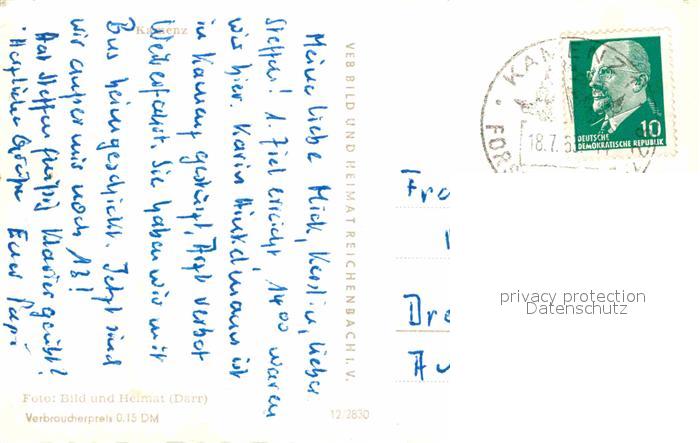 Kamenz
Meine liebe Mick, Kerstin, lieber
Steffen! 1. Ziel erreicht, 14⁰⁰ waren
wir hier. Karin Hinkelmann ist
in Kamenz gestürzt, Arzt verbot
Weiterfahrt. Sie haben wir mit
Bus heimgeschickt. Jetzt sind
wir außer mir noch 13!
Hat Steffen fleißig Klavier geübt?
Herzliche Grüße Euer Papi
VEB BILD UND HEIMAT REICHENBACH I. V.
Foto: Bild und Heimat (Darr)
Verbraucherpreis 0,15 DM
12/2830
KAMENZ
18.7.6
10
DEUTSCHE
DEMOKRATISCHE REPUBLIK
Fra
Dre
Au
privacy protection
Datenschutz